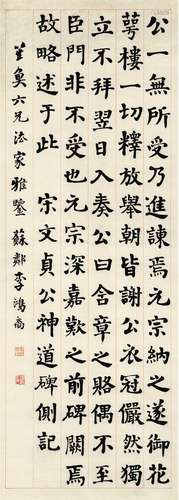 公一無所受乃進諫焉元宗納之遂御花
萼樓一切釋放舉朝皆謝公衣冠儼然獨
立不拜翌日入奏公曰含章之賂偶不至
臣門非不受也元宗深嘉歎之前碑闕焉
故略述于此 宋文貞公神道碑側記
芰奠六兄法家雅鑒 蘇鄰李鴻裔